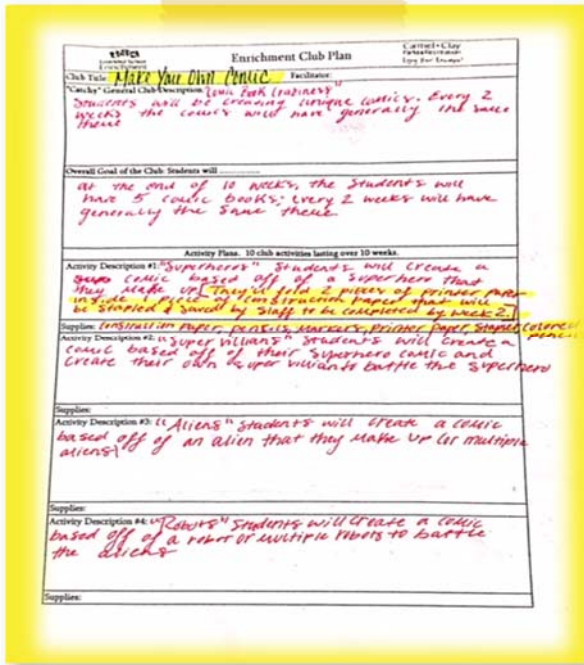 Enrichment Club Plan
Carmel • Clay
Parks & Recreation
Enrichment
Club Title: Make Your Own Comic Facilitator:
"Catchy" General Club Description: "Comic Book Craziness"
Students will be creating unique comics. Every 2
weeks the comics will have generally the same
theme
Overall Goal of the Club: Students will ..............
at the end of 10 weeks, the students will
have 5 comic books; every 2 weeks will have
generally the same theme
Activity Plans. 10 club activities lasting over 10 weeks.
Activity Description #1: "Superheros" Students will create a
comic based off of a superhero that
they make up. [They'll fold 2 pieces of printer paper
inside 1 piece of construction paper that will
be stapled & saved by staff to be completed by week 2.]
Supplies: Construction paper, pencils, markers, printer paper, stapler, colored
pencil
Activity Description #2: "Super villians" Students will create a
comic based off of their superhero comic and
create their own super villians to battle the superhero
Supplies:
Activity Description #3: "Aliens" Students will create a comic
based off of an alien that they make up (or multiple
aliens)
Supplies:
Activity Description #4: "Robots" Students will create a comic
based off of a robot or multiple robots to battle
the aliens
Supplies: